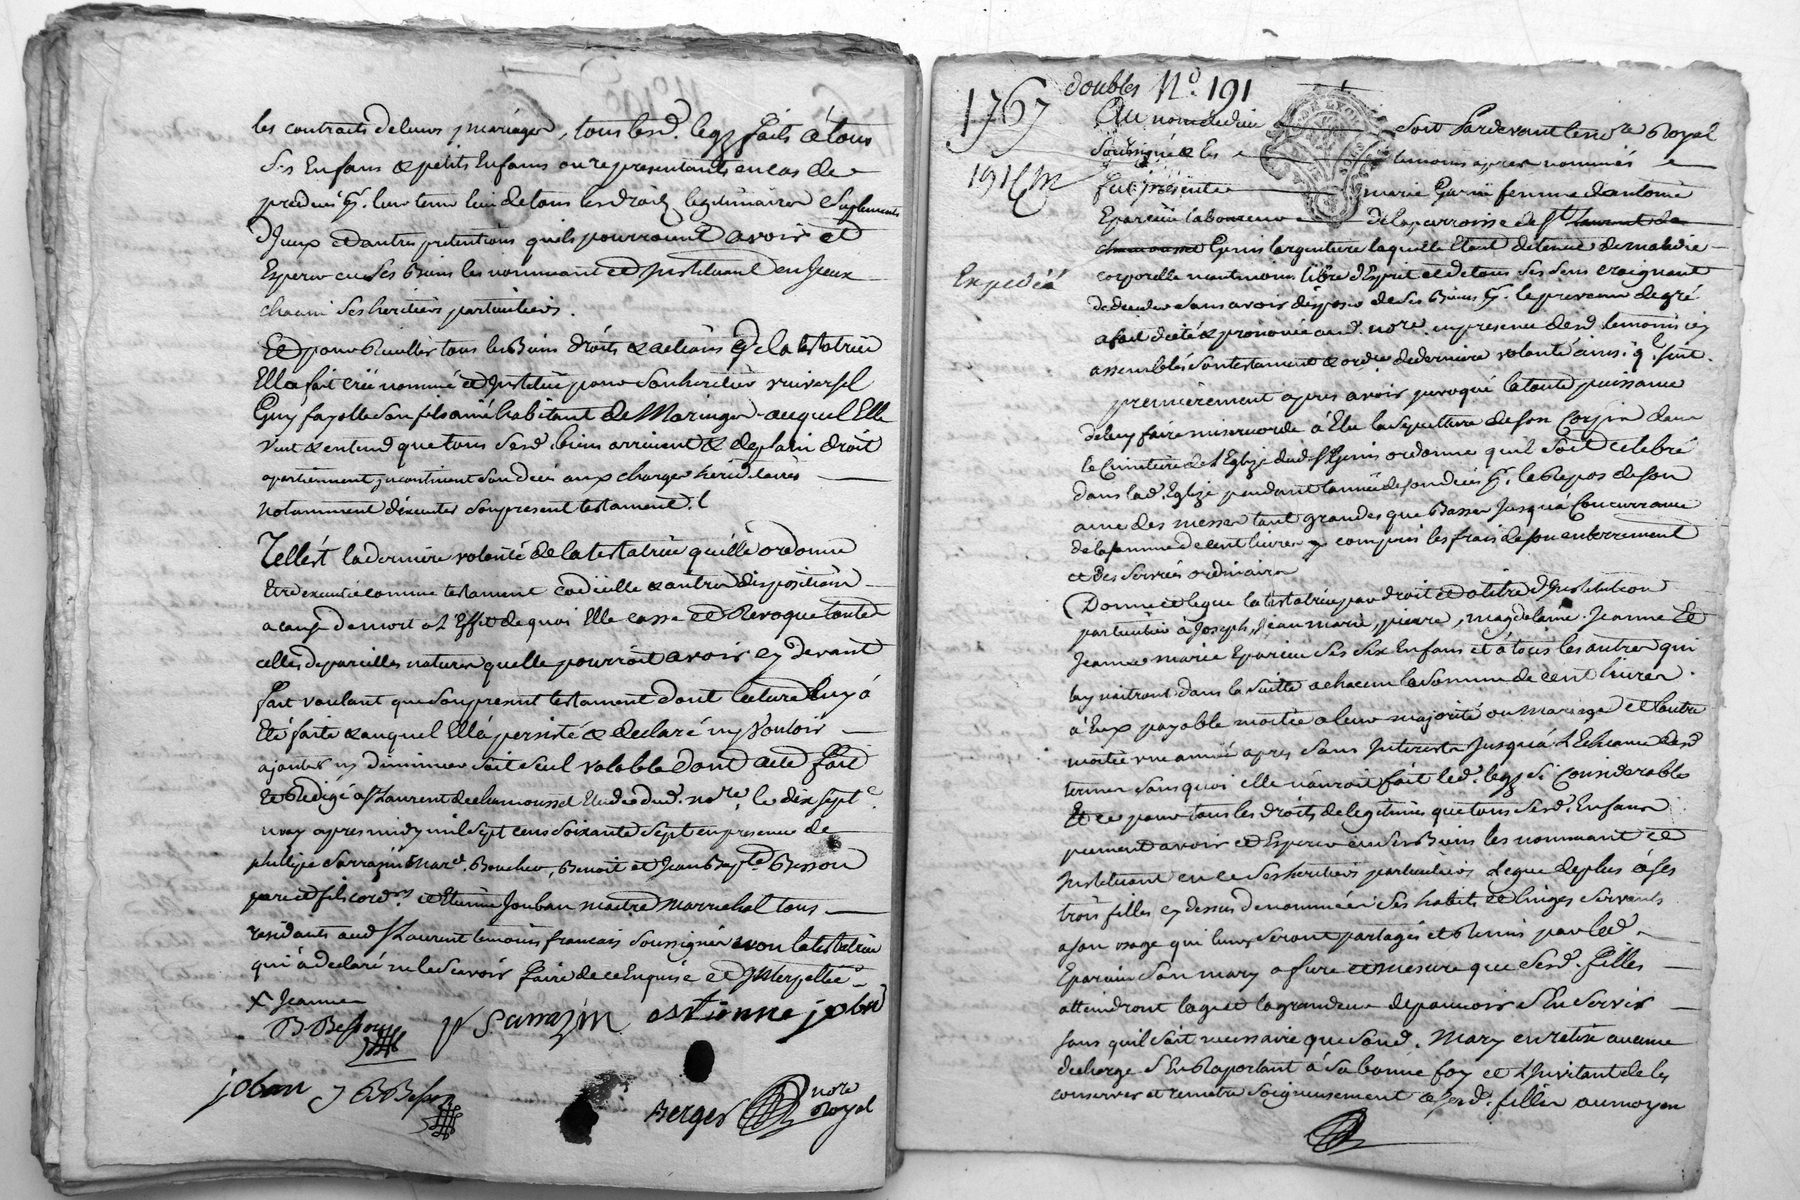 les contrats de leurs mariages, tous lesd. legs faits à tous
ses Enfans & petits Enfans ou representants en cas de
predeces leur tenir lieu de tous les droits legitimaires suplements
D'yceux et autres pretentions quils pourroient avoir et
Esperer en ses Biens les nommant et Instituant en Iceux
chacun ses heritiers particuliers.
Et pour Recueillir tous les Biens droits & actions de la testatrice
Ella fait créé nommé et Institué pour son heritier vniversel
Guy fayolle son fils ainé habitant de Maringes auquel Elle
Veut & entend que tous sesd. biens arrivent & de plain droit
apartiennent incontinent son decès aux charges hereditaires
notamment d'executer son present testament.
Tellest la derniere volonté de la testatrice quelle ordonne
Etre executée comme testament codicille & autre disposition
a cause de mort a l'Effet de quoi Elle casse et Revoque toutes
celles de pareilles natures quelle pourroit avoir cy devant
fait voulant que son present testament dont lecture luy a
Eté faite & auquel Ella persisté & declaré ny vouloir
ajouter ny diminuer soit seul valable dont acte fait
Et Redigé a St Laurent de chamousset Etude dud. nore. le dix sept
may apres midy mil sept cens soixante sept en presence de
phillipe Sarrazin mard. Boucher, Benoit et Jean Bapte. Besson
pere et fils cordrs. et Etienne Jouban maitre marechal tous
residants aud St Laurent temoins francais soussignés non la testatrice
qui à declaré ne le scavoir faire de ce Enquise et Interpellée
x Jeanne
B Besson p Sarrazin estienne joban
joban J B Besson
Berger nore Royal
1767 doubles No. 191
Au nom de dieu soit Pardevant le nore Royal
191
soussigné & les temoins apres nommés
fut presente marie Garin femme d'antoine
Eparcieu laboureur de la parroisse de St Laurent de
chamousset Genis largentiere laquelle Etant detenue de maladie
Expedié
corporelle neantmoins libre d'Esprit et de tous ses sens craignant
de deceder sans avoir disposé de ses Biens le prevenu de gré
a fait dicté & prononcé aud. nore. en presence desd. temoins icy
assemblés son testament & ordre de derniere volonté ainsi q'l suit.
premierement apres avoir invoqué la toute puissance
de luy faire misericorde à Elu la sepulture de son Corps dans
le Cimetiere de l'Eglize dud St Genis ordonne quil soit celebré
dans lad. Eglize pendant l'année de son decès le Repos de son
ame des messes tant grandes que Basses Jusquà Concurrance
de la somme de cent livres y compris les frais de son enterrement
et des services ordinaires
Donne et legue la testatrice par droit et a titre d'Institution
particuliere à Joseph, Jean marie, pierre, magdelaine, Jeanne Et
Jeanne marie Eparcieu ses six Enfans et à tous les autres qui
luy naitront dans la suitte a chacun la somme de cent livres
à Eux payable moitié a leur majorité ou Mariage et l'autre
moitié vne année apres sans Interets Jusquà l'Echeance desd
termes sans quoi elle nauroit fait led. legs si Considerable
Et ce pour tous les droits de legitimes que tous sesd. Enfans
peuvent avoir et Esperer en ses Biens les nommant et
Instituant en ce ses heritiers particuliers Legue de plus à ses
trois filles cy dessus denommées ses habits et linges servants
a son usage qui leurs seront partagés et Remis par led.
Eparcieu son mary a fure et mesure que sesd. filles
atteindront lage et la grandeur de pouvoir s'En servir
sans quil soit necessaire que sond. Mary en retire aucune
decharge s'En Raportant à sa bonne foy et l'Invitant de les
conserver et remettre soigneusement à sesd. filles au moyen